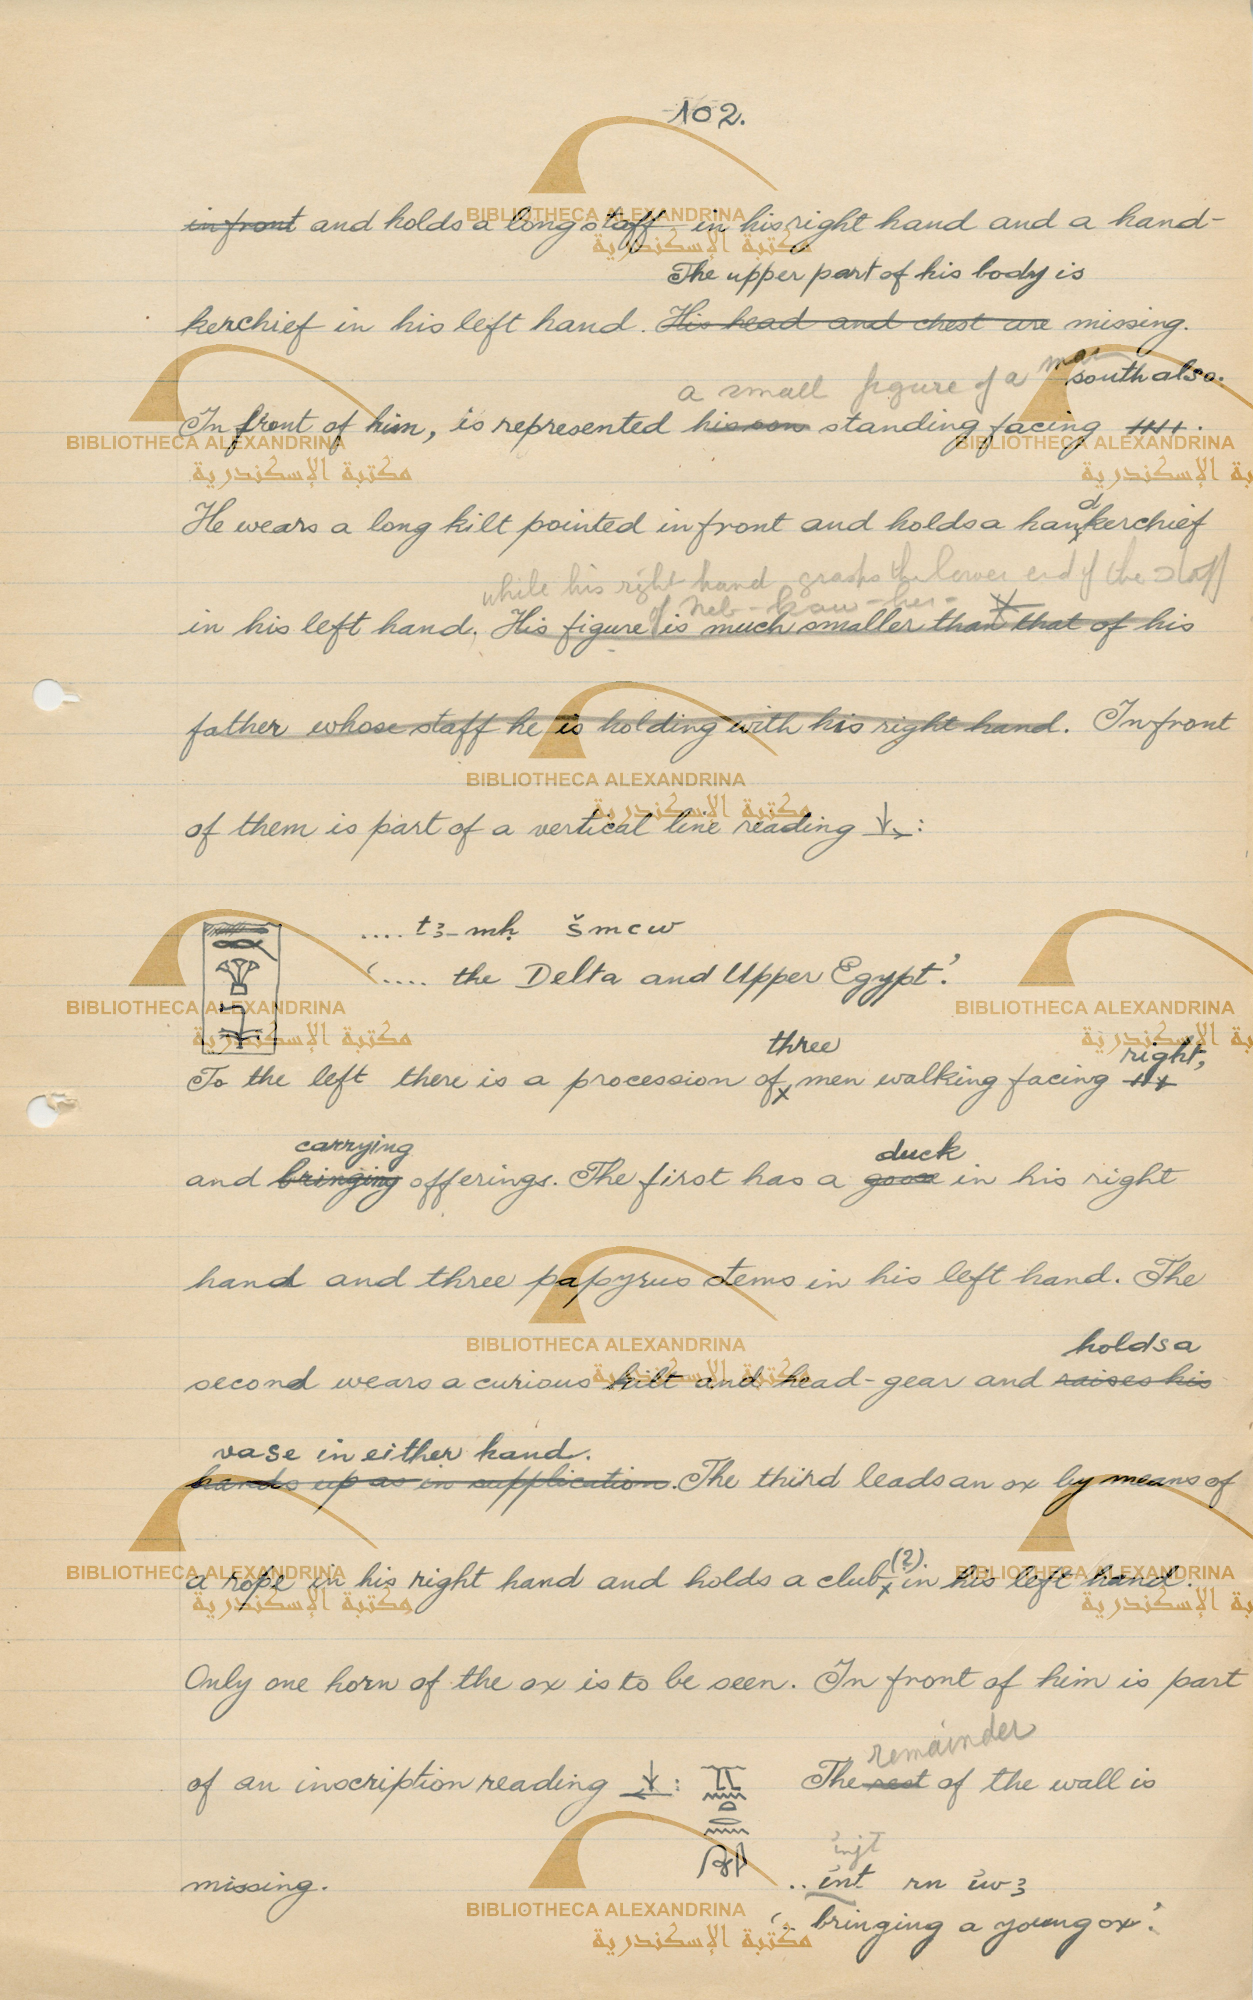 102.
in front and holds a long staff in his right hand and a hand-
The upper part of his body is
kerchief in his left hand. His head and chest are missing.
a small figure of a man south also.
In front of him, is represented his son standing facing
He wears a long kilt pointed in front and holds a handkerchief
while his right hand grasps the lower end of the staff
of Neb-kaw-her-
in his left hand. His figure is much smaller than that of his
father whose staff he is holding with his right hand. In front
of them is part of a vertical line reading ↓→:
.... t3-mḥ šmcw
'.... the Delta and Upper Egypt'.
three
right,
To the left there is a procession of men walking facing
carrying duck
and bringing offerings. The first has a goose in his right
hand and three papyrus stems in his left hand. The
holds a
second wears a curious kilt and head-gear and raises his
vase in either hand.
hands up as in supplication. The third leads an ox by means of
a rope in his right hand and holds a club (?) in his left hand.
Only one horn of the ox is to be seen. In front of him is part
remainder
of an inscription reading ↓←: The rest of the wall is
injt
missing. .. int rn iw3
'.. bringing a young ox'.
BIBLIOTHECA ALEXANDRINA
مكتبة الإسكندرية